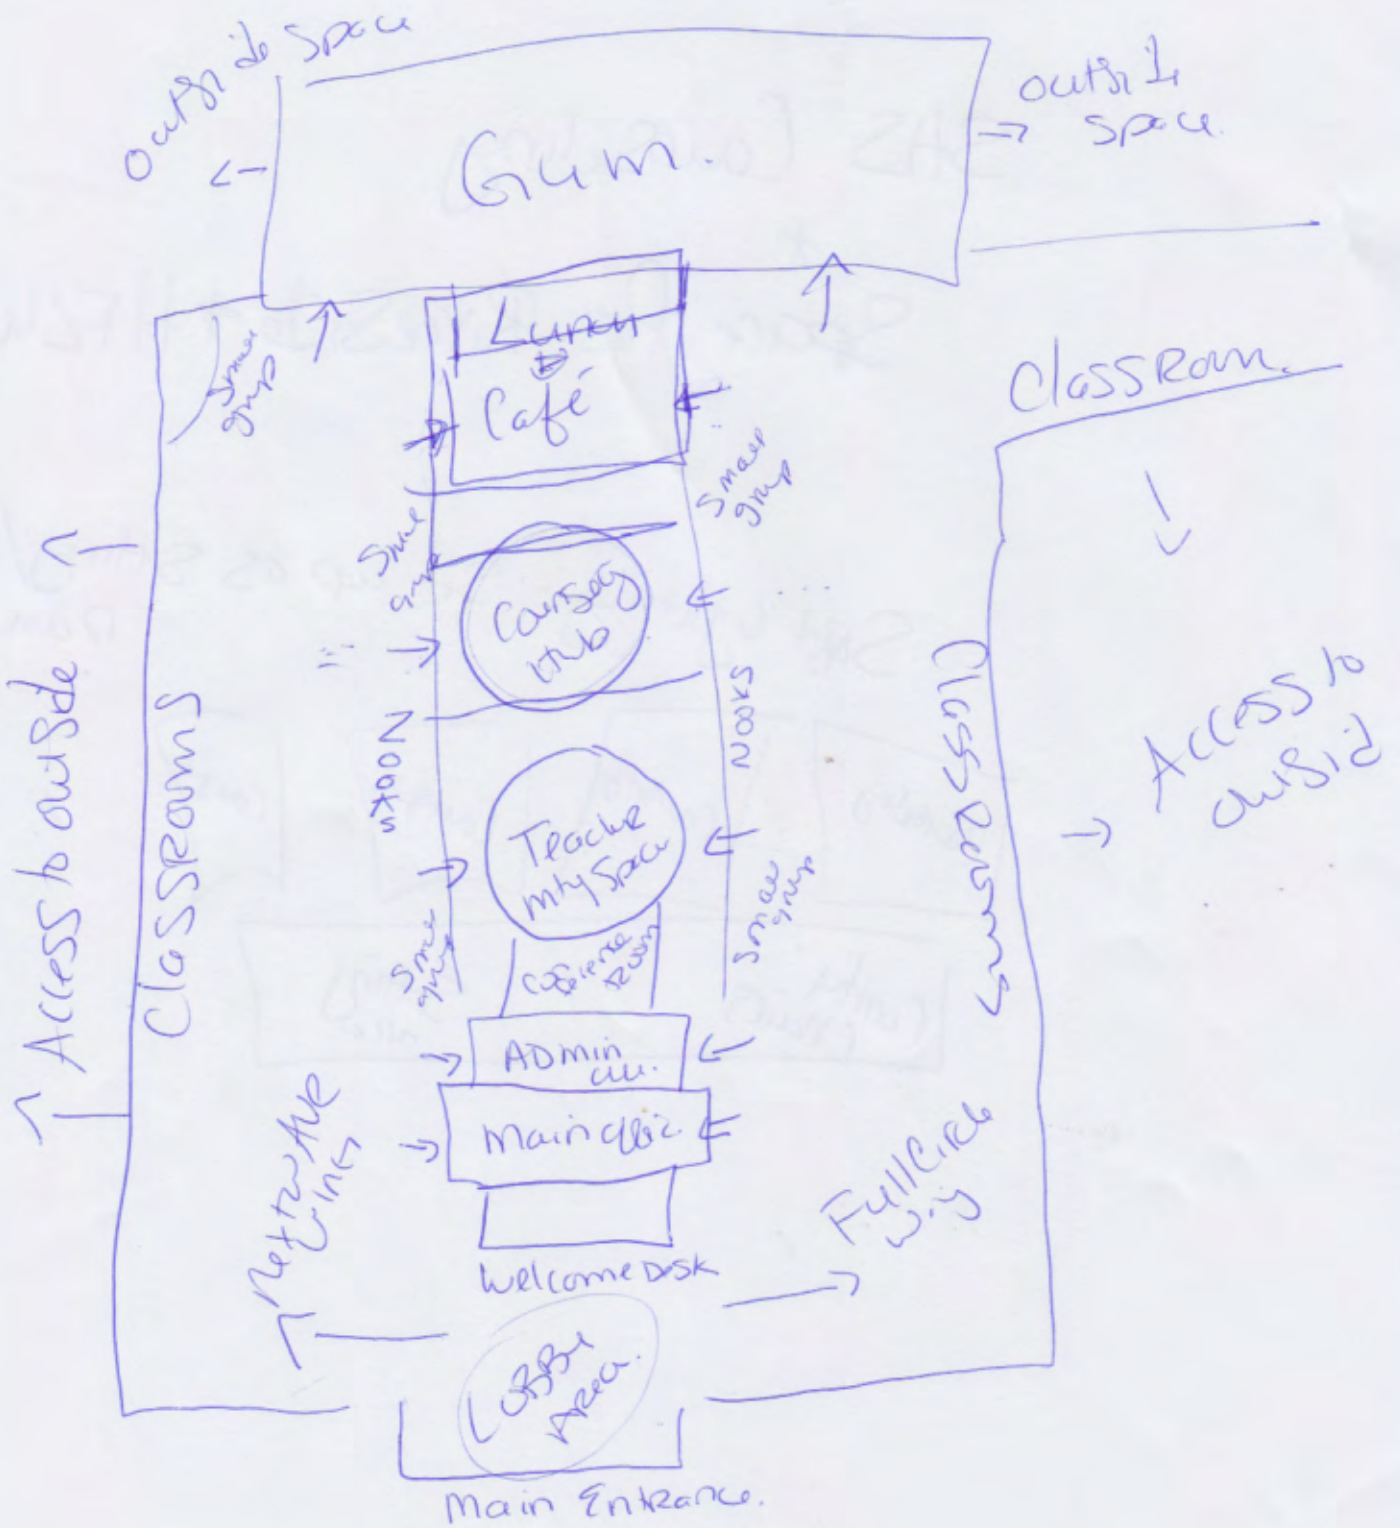 Outside Space
outside
space.
Gym.
Lunch
Café
Small
group
Classroom.
Small
group
Small
group
Counseling
Hub
Nooks
Nooks
Access to outside
Classrooms
Classrooms
Access to
outsid
Teacher
mtg Space
Small
group
Small
group
Conference
Room
ADmin
Main offic.
Wing
Full Circle
Welcome Desk
LOBBY
Area.
Main Entrance.